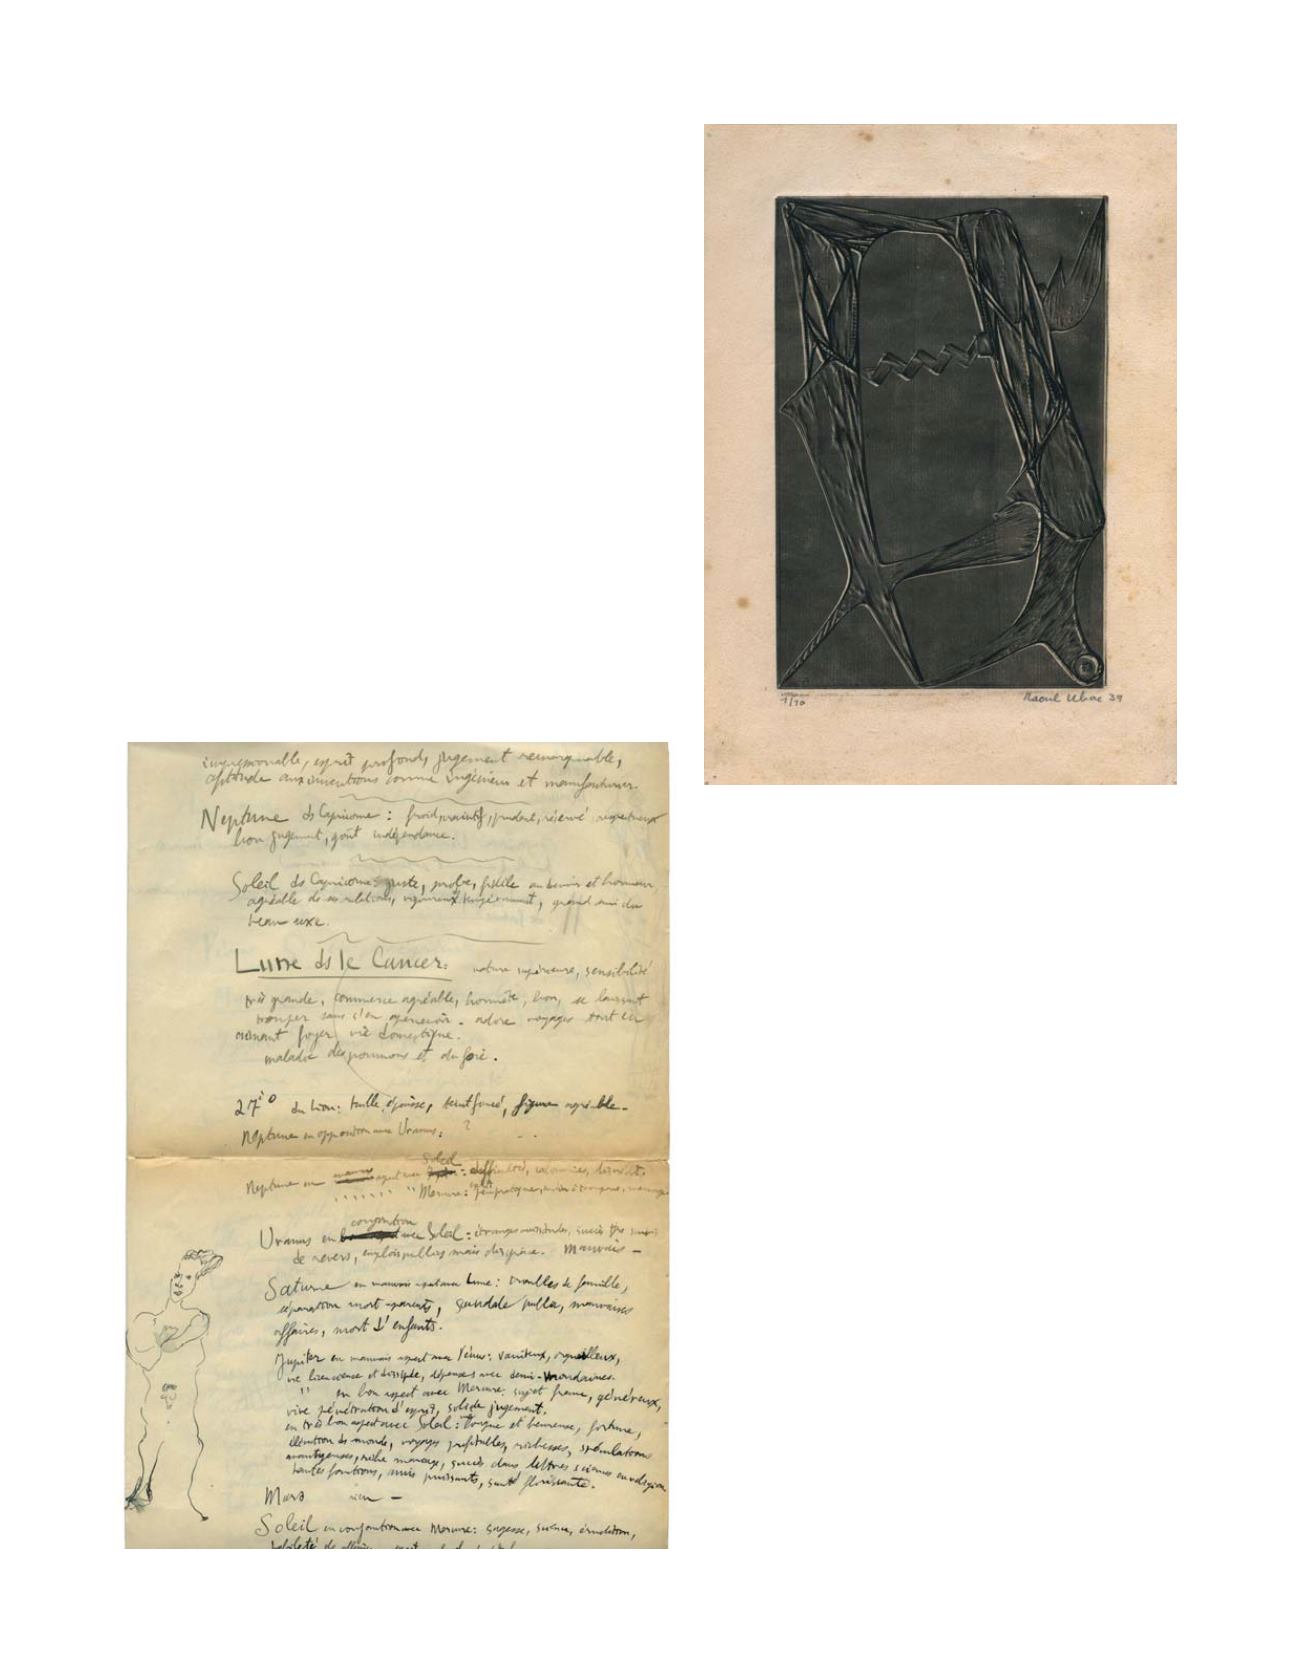 1/10
Raoul Ubac 39
esprit profond, jugement remarquable,
aptitude aux inventions comme ingénieur et manufacturier.
Neptune ds Capricorne : froid, prudent, réservé
bon jugement, goût indépendance.
Soleil ds Capricorne : juste, probe, fidèle au devoir et honneur
agréable de ses relations, vigoureux tempérament, grand ami du
beau sexe.
Lune ds le Cancer : nature supérieure, sensibilité
très grande, commerce agréable, honnête, bon, se laissant
tromper sans s'en apercevoir. adore voyages tout en
aimant foyer vie domestique.
maladie des poumons et du foie.
27è° du Lion : taille épaisse, teint foncé, figure agréable.
Neptune en opposition avec Uranus : ?
Soleil
Neptune en aspect avec :
" Mercure :
conjonction
Uranus en avec Soleil : étranges
de revers, emplois publics mais disgrâce. mauvais -
Saturne en mauvais aspect avec Lune : troubles de famille,
séparation mort parents, scandale public, mauvaises
affaires, mort d'enfants.
Jupiter en mauvais aspect avec Vénus : vaniteux, orgueilleux,
vie licencieuse et dissipée, dépenses avec demi-mondaines.
" en bon aspect avec Mercure : sujet franc, généreux,
vive pénétration d'esprit, solide jugement.
en très bon aspect avec Soleil : longue et heureuse, fortune,
élévation ds monde, voyages profitables, richesses, spéculations
avantageuses, riche mariage, succès dans lettres sciences ou religion
hautes fonctions, amis puissants, santé florissante.
Mars rien -
Soleil en conjonction avec Mercure : sagesse, science, érudition,